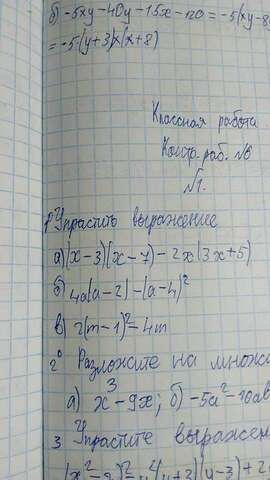 б) -5xy-40y-15x-120 = -5(xy-8
= -5(y+3)x(x+8)
Классная работа
Контр. раб. №6
№1.
1° Упрастить выражение
а)(x-3)(x-7)-2x(3x+5)
б) 4a(a-2)-(a-4)²
в) 2(m-1)²-4m
2° Разложите на множ
а) x³-9x; б) -5a²-10ab
3 Упрастите выражен